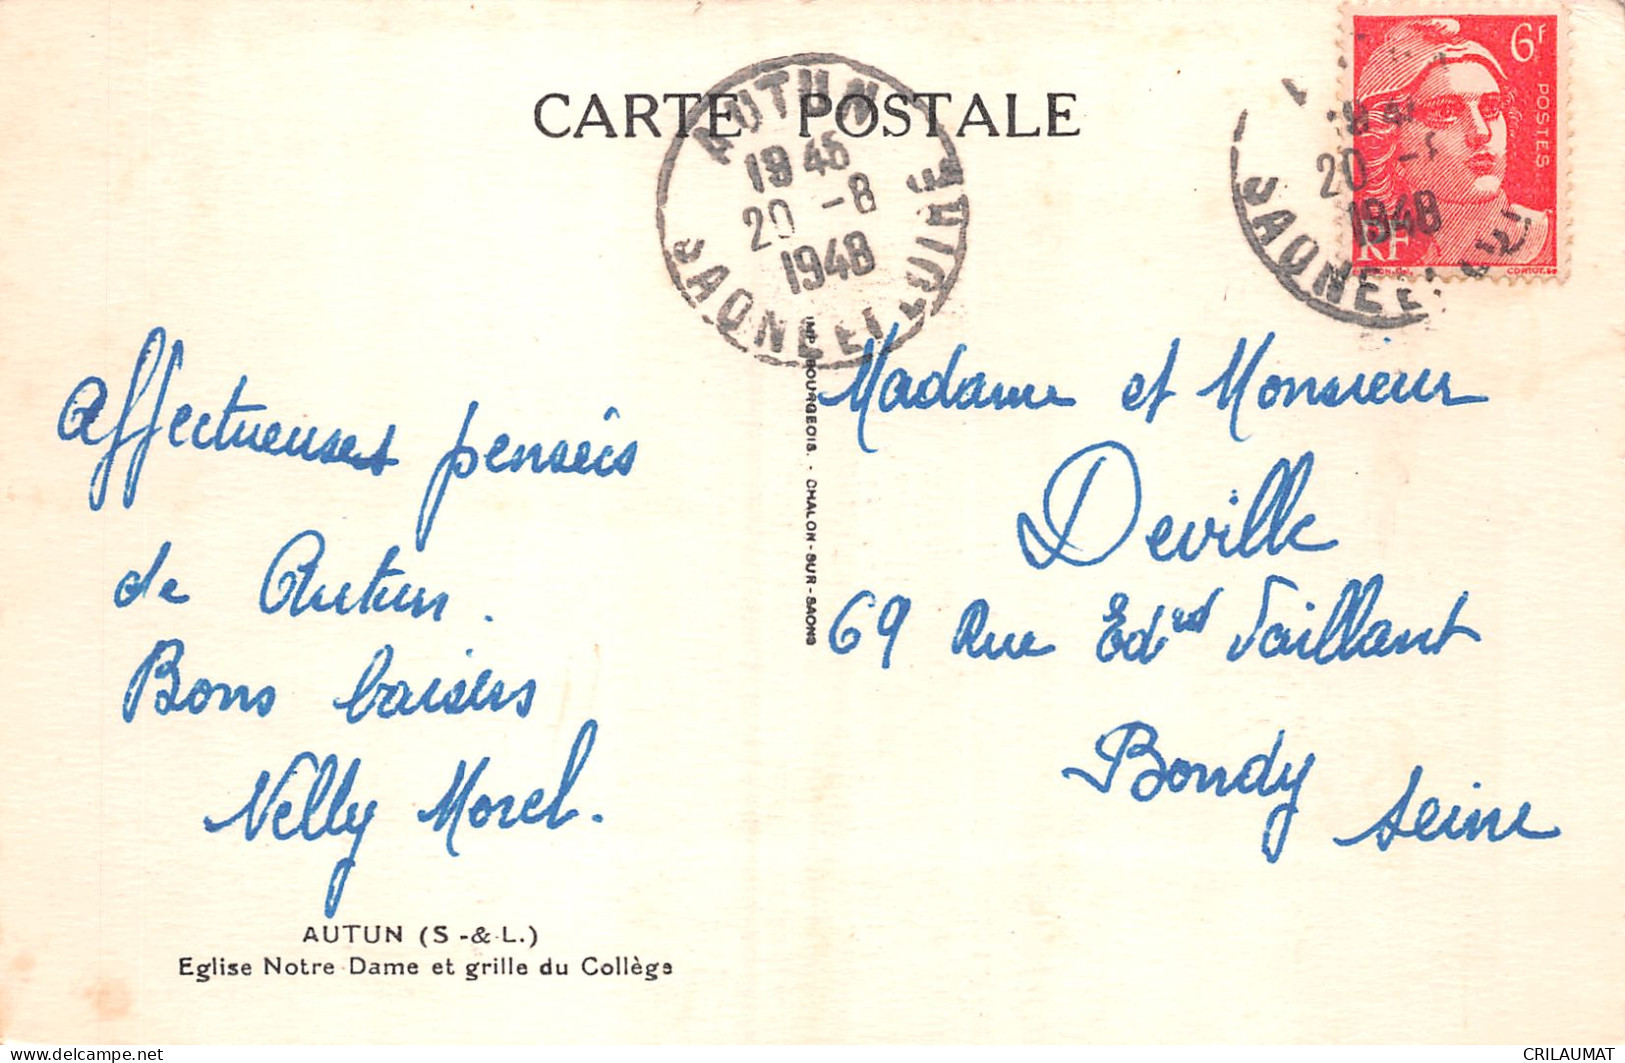 CARTE POSTALE
AUTUN
1946
20 -8
1948
SAONE ET LOIRE
20
1948
SAONE ET
6F
POSTES
RF
Affectueuses pensées
de Autun.
Bons baisers
Nelly Morel.
AUTUN (S-&-L.)
Eglise Notre Dame et grille du Collège
IMP. BOURGEOIS. - CHALON-SUR-SAONE
Madame et Monsieur
Deville
69 Rue Edrd Vaillant
Bondy
Seine
CRILAUMAT